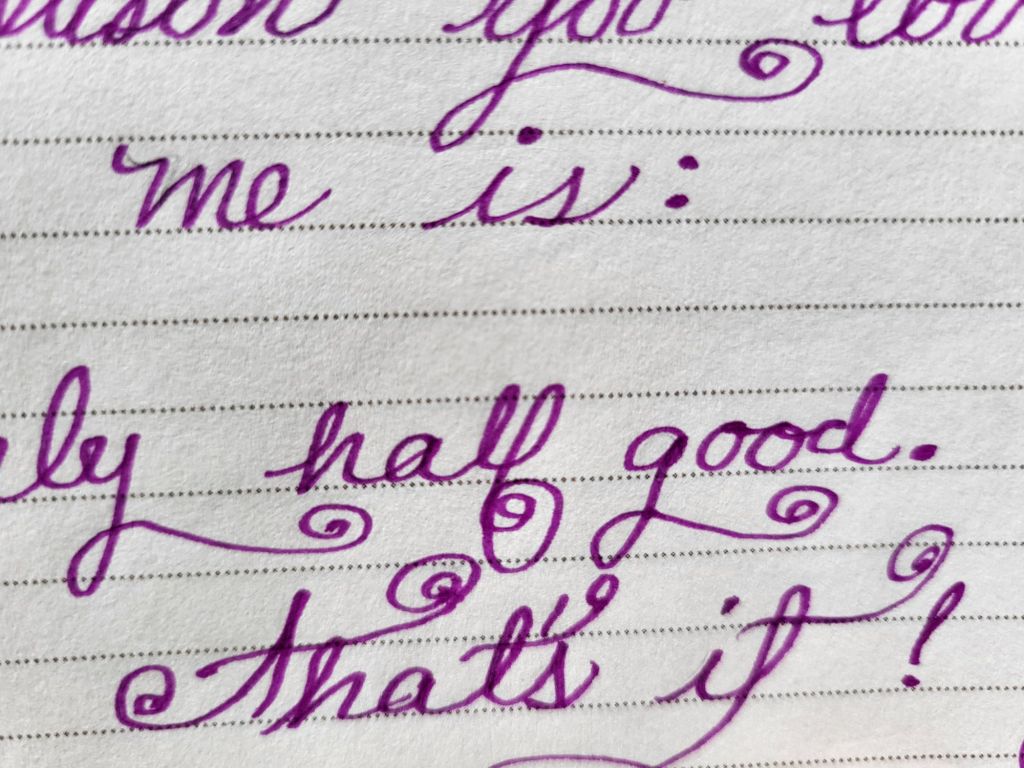 eason you lov
me is:
ly half good.
That's it!